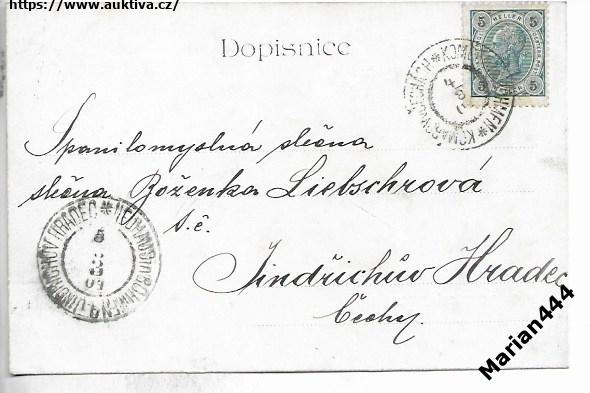 https://www.auktiva.cz/
Dopisnice
5 HELLER 5
5 5
Spanilomyslná slečna
slečna Boženka Liebschrová
s.č.
Jindřichův Hradec
Čechy.
NEUHAUS IN BÖHMEN * JINDŘICHŮV HRADEC *
5
3
01
Marian444